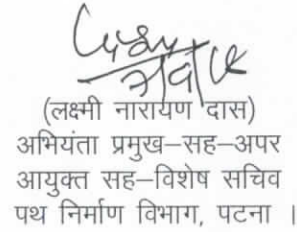 (लक्ष्मी नारायण दास)
अभियंता प्रमुख–सह–अपर
आयुक्त सह–विशेष सचिव
पथ निर्माण विभाग, पटना ।